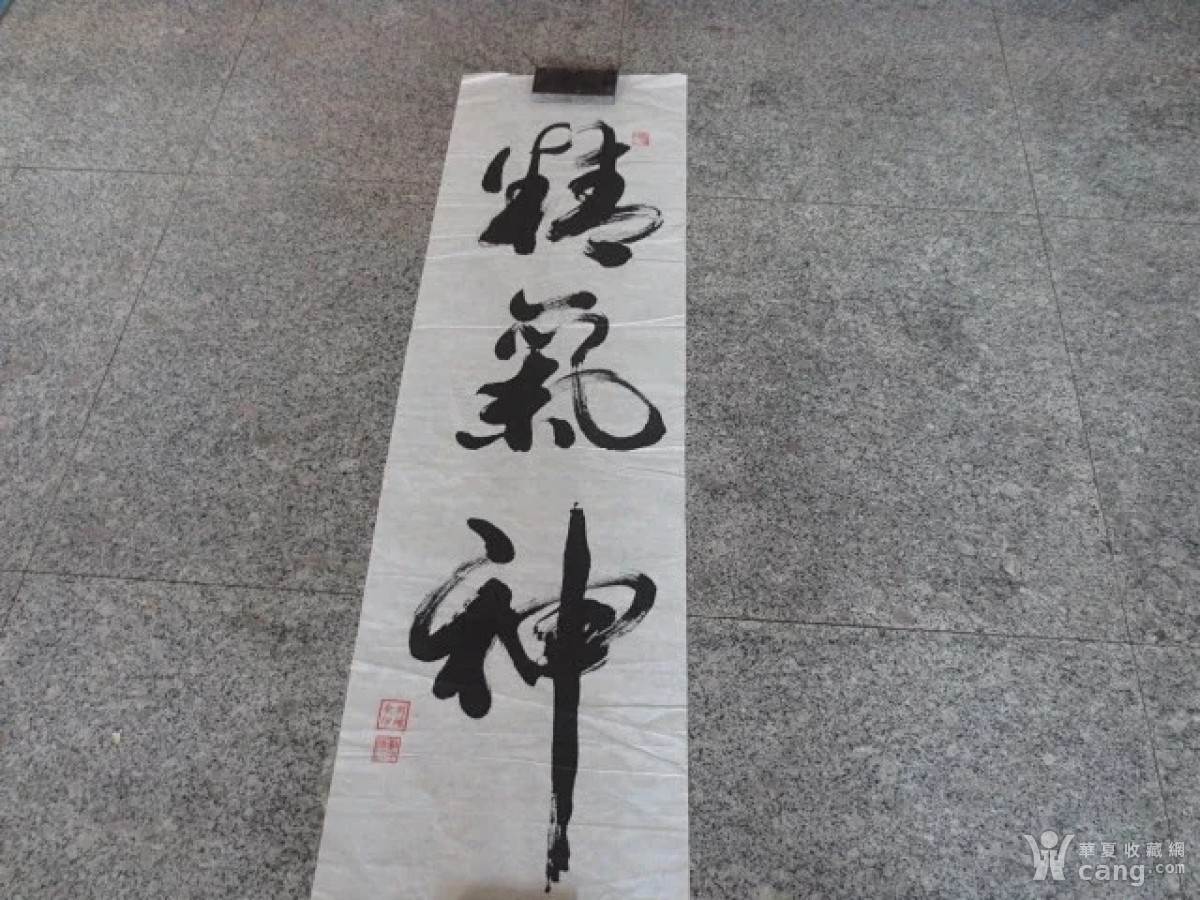 精氣神
華夏收藏網
cang.com